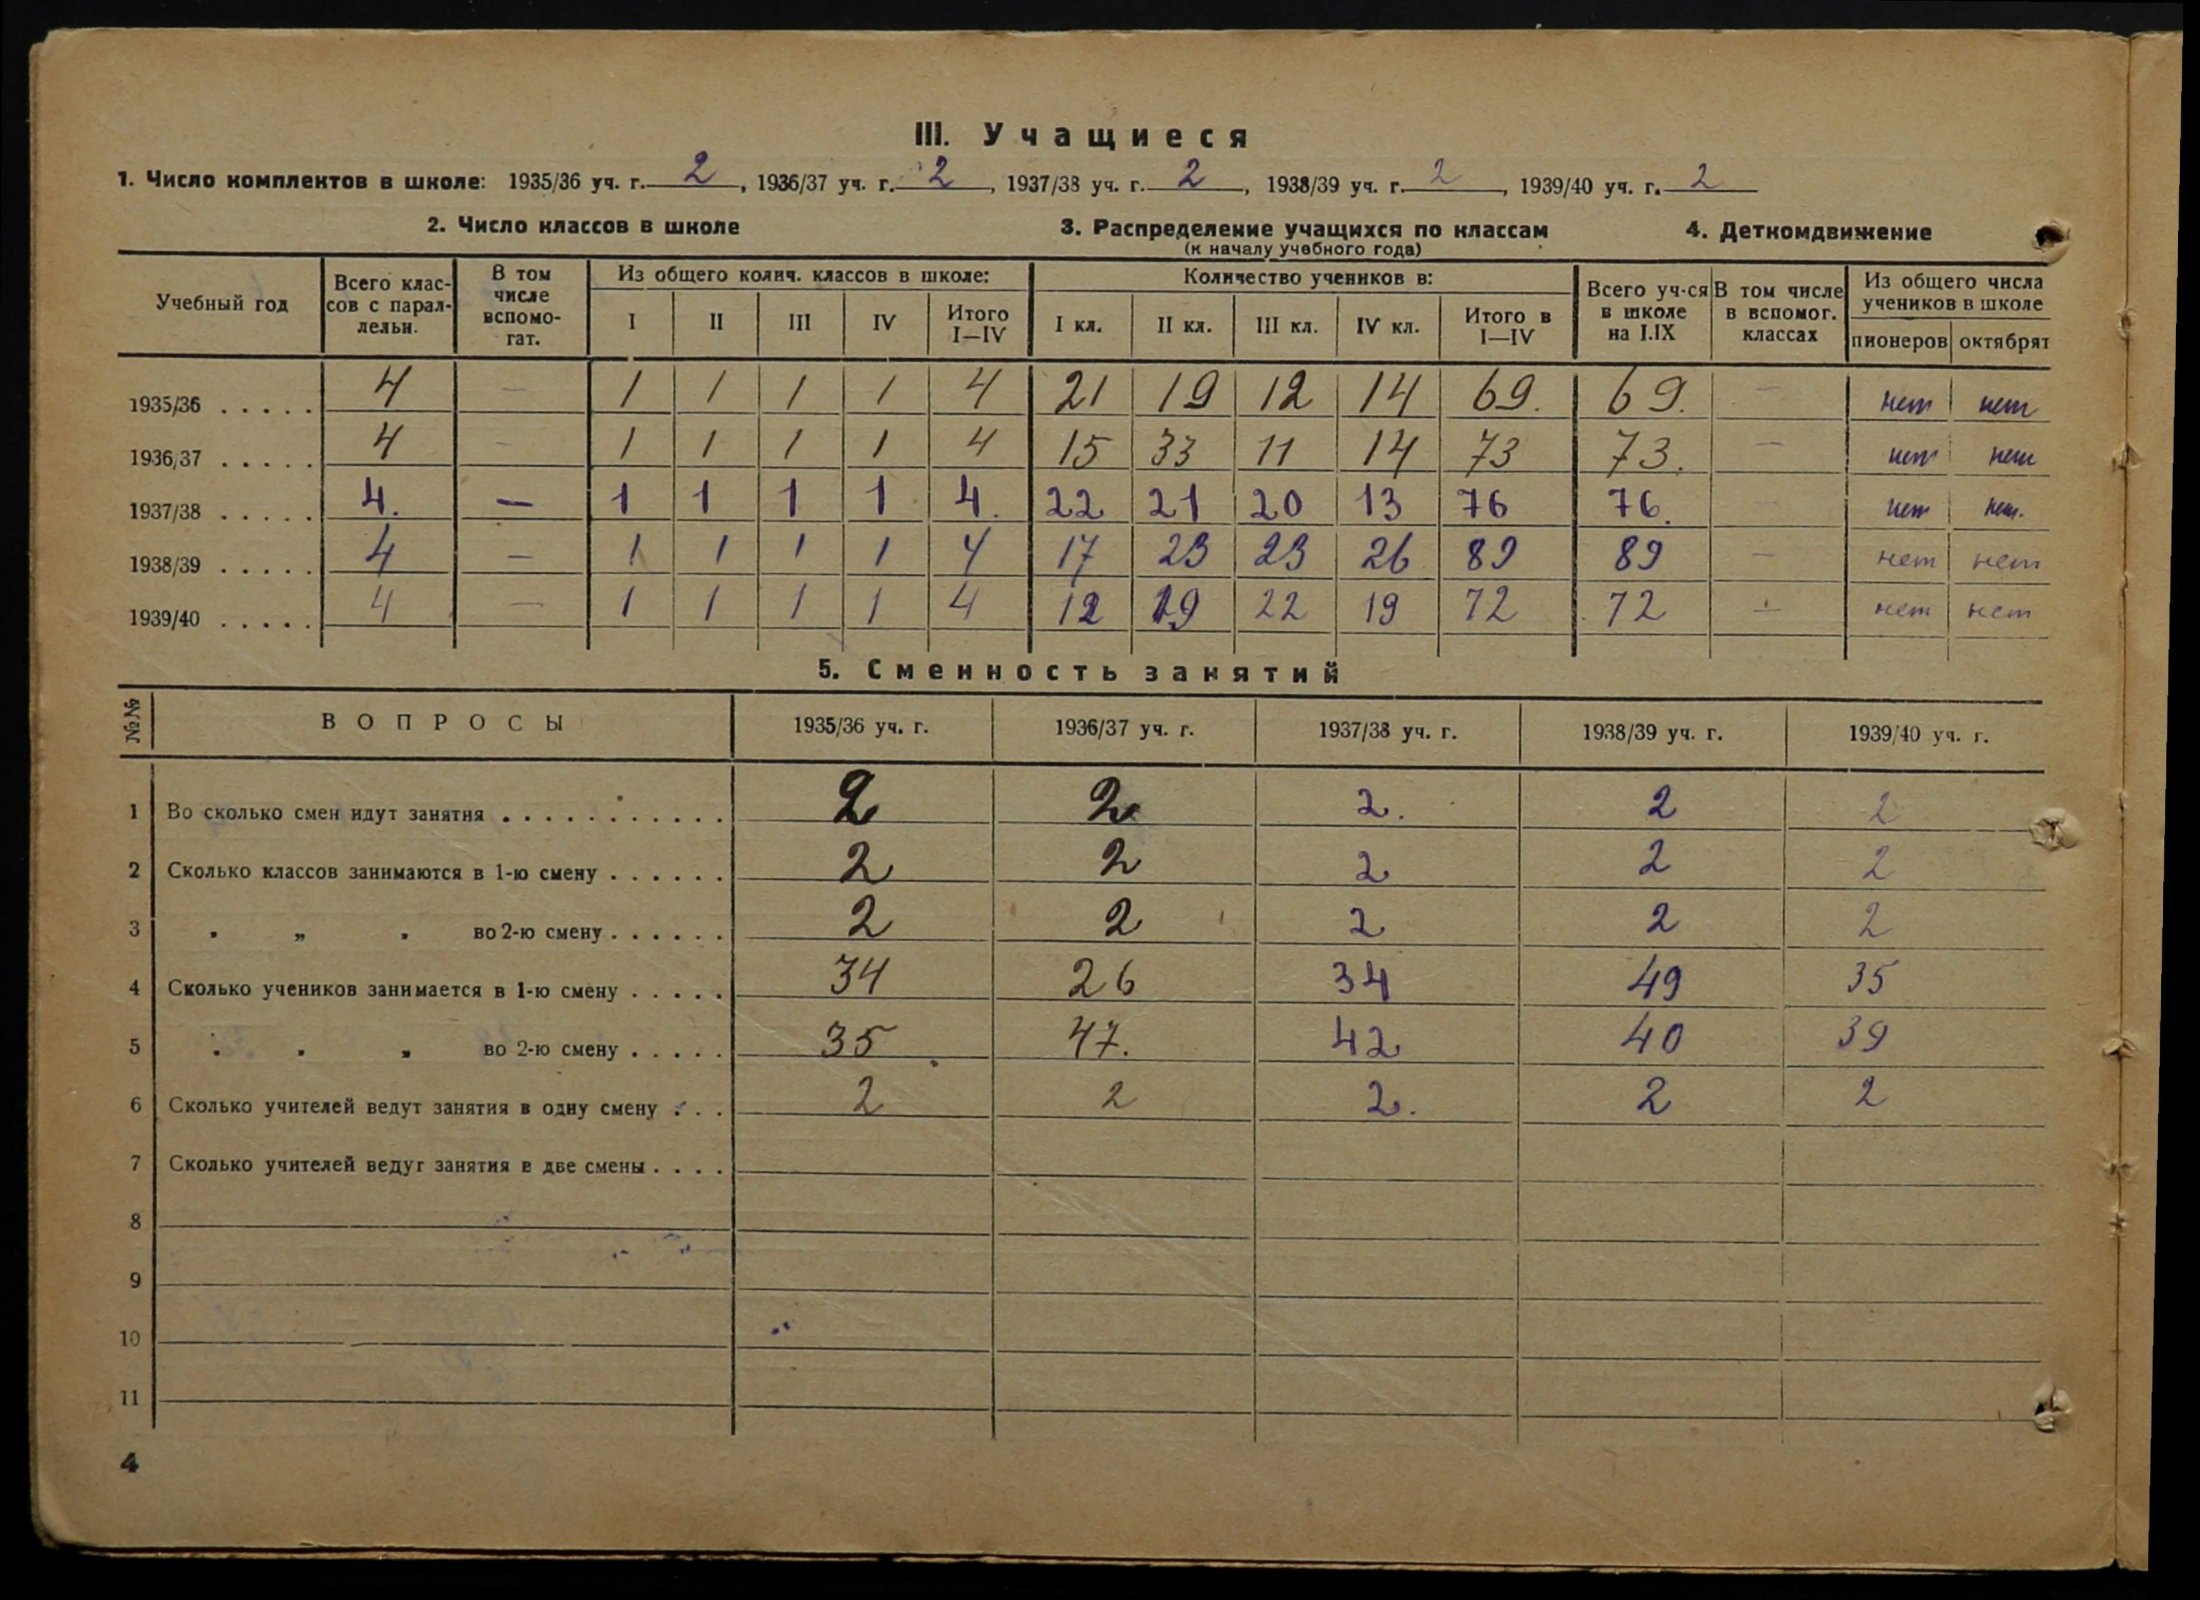 III. Учащиеся
1. Число комплектов в школе: 1935/36 уч. г. 2, 1936/37 уч. г. 2, 1937/38 уч. г. 2, 1938/39 уч. г. 2, 1939/40 уч. г. 2
2. Число классов в школе 3. Распределение учащихся по классам 4. Деткомдвижение
(к началу учебного года)
Учебный год Всего классов с параллельн. В том числе вспомогат. Из общего колич. классов в школе: Количество учеников в: Всего уч-ся в школе на I.IX В том числе в вспомог. классах Из общего числа учеников в школе
I II III IV Итого I—IV I кл. II кл. III кл. IV кл. Итого в I—IV пионеров октябрят
1935/36 . . . . . 4 — 1 1 1 1 4 21 19 12 14 69. 69. — нет нет
1936/37 . . . . . 4 — 1 1 1 1 4 15 33 11 14 73 73. — нет нет
1937/38 . . . . . 4. — 1 1 1 1 4. 22 21 20 13 76 76. — нет нет.
1938/39 . . . . . 4 — 1 1 1 1 4 17 23 23 26 89 89 — нет нет
1939/40 . . . . . 4 — 1 1 1 1 4 12 19 22 19 72 72 — нет нет
5. Сменность занятий
№№ ВОПРОСЫ 1935/36 уч. г. 1936/37 уч. г. 1937/38 уч. г. 1938/39 уч. г. 1939/40 уч. г.
1 Во сколько смен идут занятия . . . . . . . . . . . 2 2 2. 2 2
2 Сколько классов занимаются в 1-ю смену . . . . . . 2 2 2 2 2
3 „ „ „ во 2-ю смену . . . . . . 2 2 2 2 2
4 Сколько учеников занимается в 1-ю смену . . . . . 34 26 34 49 35
5 „ „ „ во 2-ю смену . . . . . 35 47. 42 40 39
6 Сколько учителей ведут занятия в одну смену . . . 2 2 2. 2 2
7 Сколько учителей ведут занятия в две смены . . . .
8
9
10
11
4